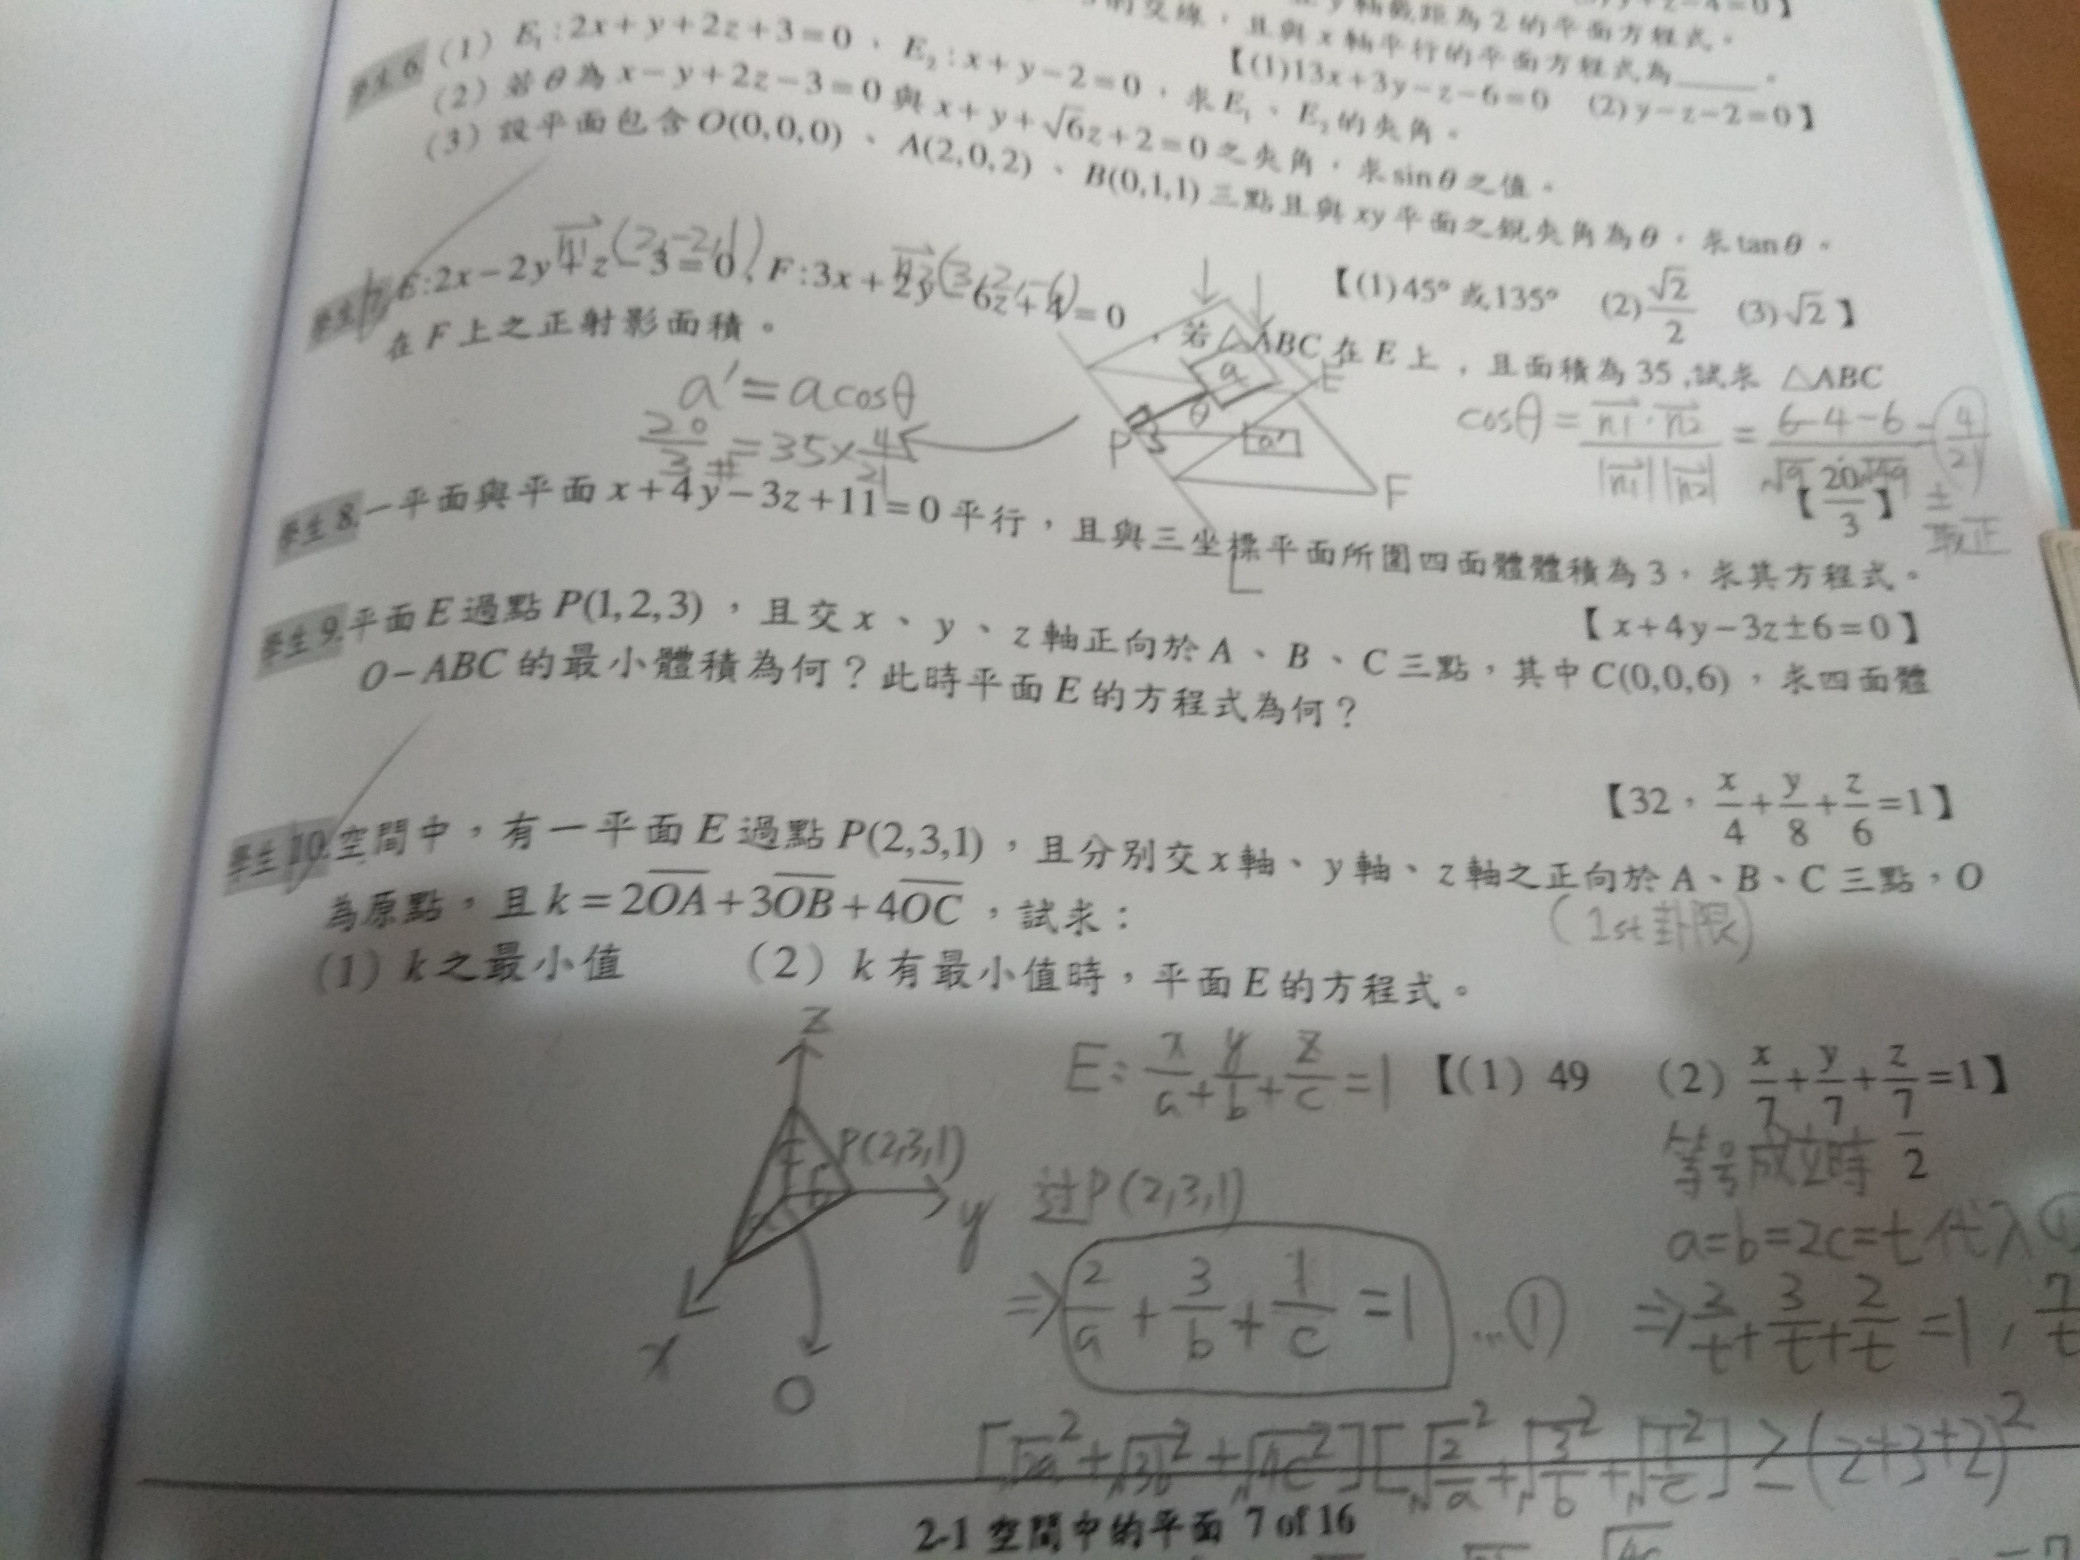 y軸截距為2的平面方程式。
的交線,且與x軸平行的平面方程式為____。
【(1)13x+3y-z-6=0 (2)y-z-2=0】
學生6 (1) E₁:2x+y+2z+3=0、E₂:x+y-2=0,求E₁、E₂的夾角。
(2) 若θ為x-y+2z-3=0與x+y+√6z+2=0之夾角,求sinθ之值。
(3) 設平面包含O(0,0,0)、A(2,0,2)、B(0,1,1)三點且與xy平面之銳夾角為θ,求tanθ。
【(1)45°或135° (2)√2/2 (3)√2】
n1(2,-2,1) n2(3,2,-6)
學生7. E:2x-2y+z-3=0、F:3x+2y-6z+4=0,若△ABC在E上,且面積為35,試求 △ABC
在F上之正射影面積。
a'=acosθ
20/3 #=35×4/21
a E θ P a' F L
cosθ=n1·n2/|n1||n2|=6-4-6/√9√49=4/21
±取正
【20/3】
學生8.一平面與平面x+4y-3z+11=0平行,且與三坐標平面所圍四面體體積為3,求其方程式。
【x+4y-3z±6=0】
學生9.平面E過點P(1,2,3),且交x、y、z軸正向於A、B、C三點,其中C(0,0,6),求四面體
O-ABC的最小體積為何?此時平面E的方程式為何?
【32,x/4+y/8+z/6=1】
學生10.空間中,有一平面E過點P(2,3,1),且分別交x軸、y軸、z軸之正向於A、B、C三點,O
為原點,且k=2OA+3OB+4OC,試求:
(1st卦限)
(1) k之最小值 (2) k有最小值時,平面E的方程式。
E:x/a+y/b+z/c=1
【(1) 49 (2) x/7+y/7+z/(7/2)=1】
z
P(2,3,1)
y
x
O
过P(2,3,1)
⇒2/a+3/b+1/c=1 ...①
等号成立時
a=b=2c=t代入①
⇒2/t+3/t+2/t=1,7/t
[√2a²+√3b²+√4c²][√2/a²+√3/b²+√1/c²]≥(2+3+2)²
2-1 空間中的平面 7 of 16